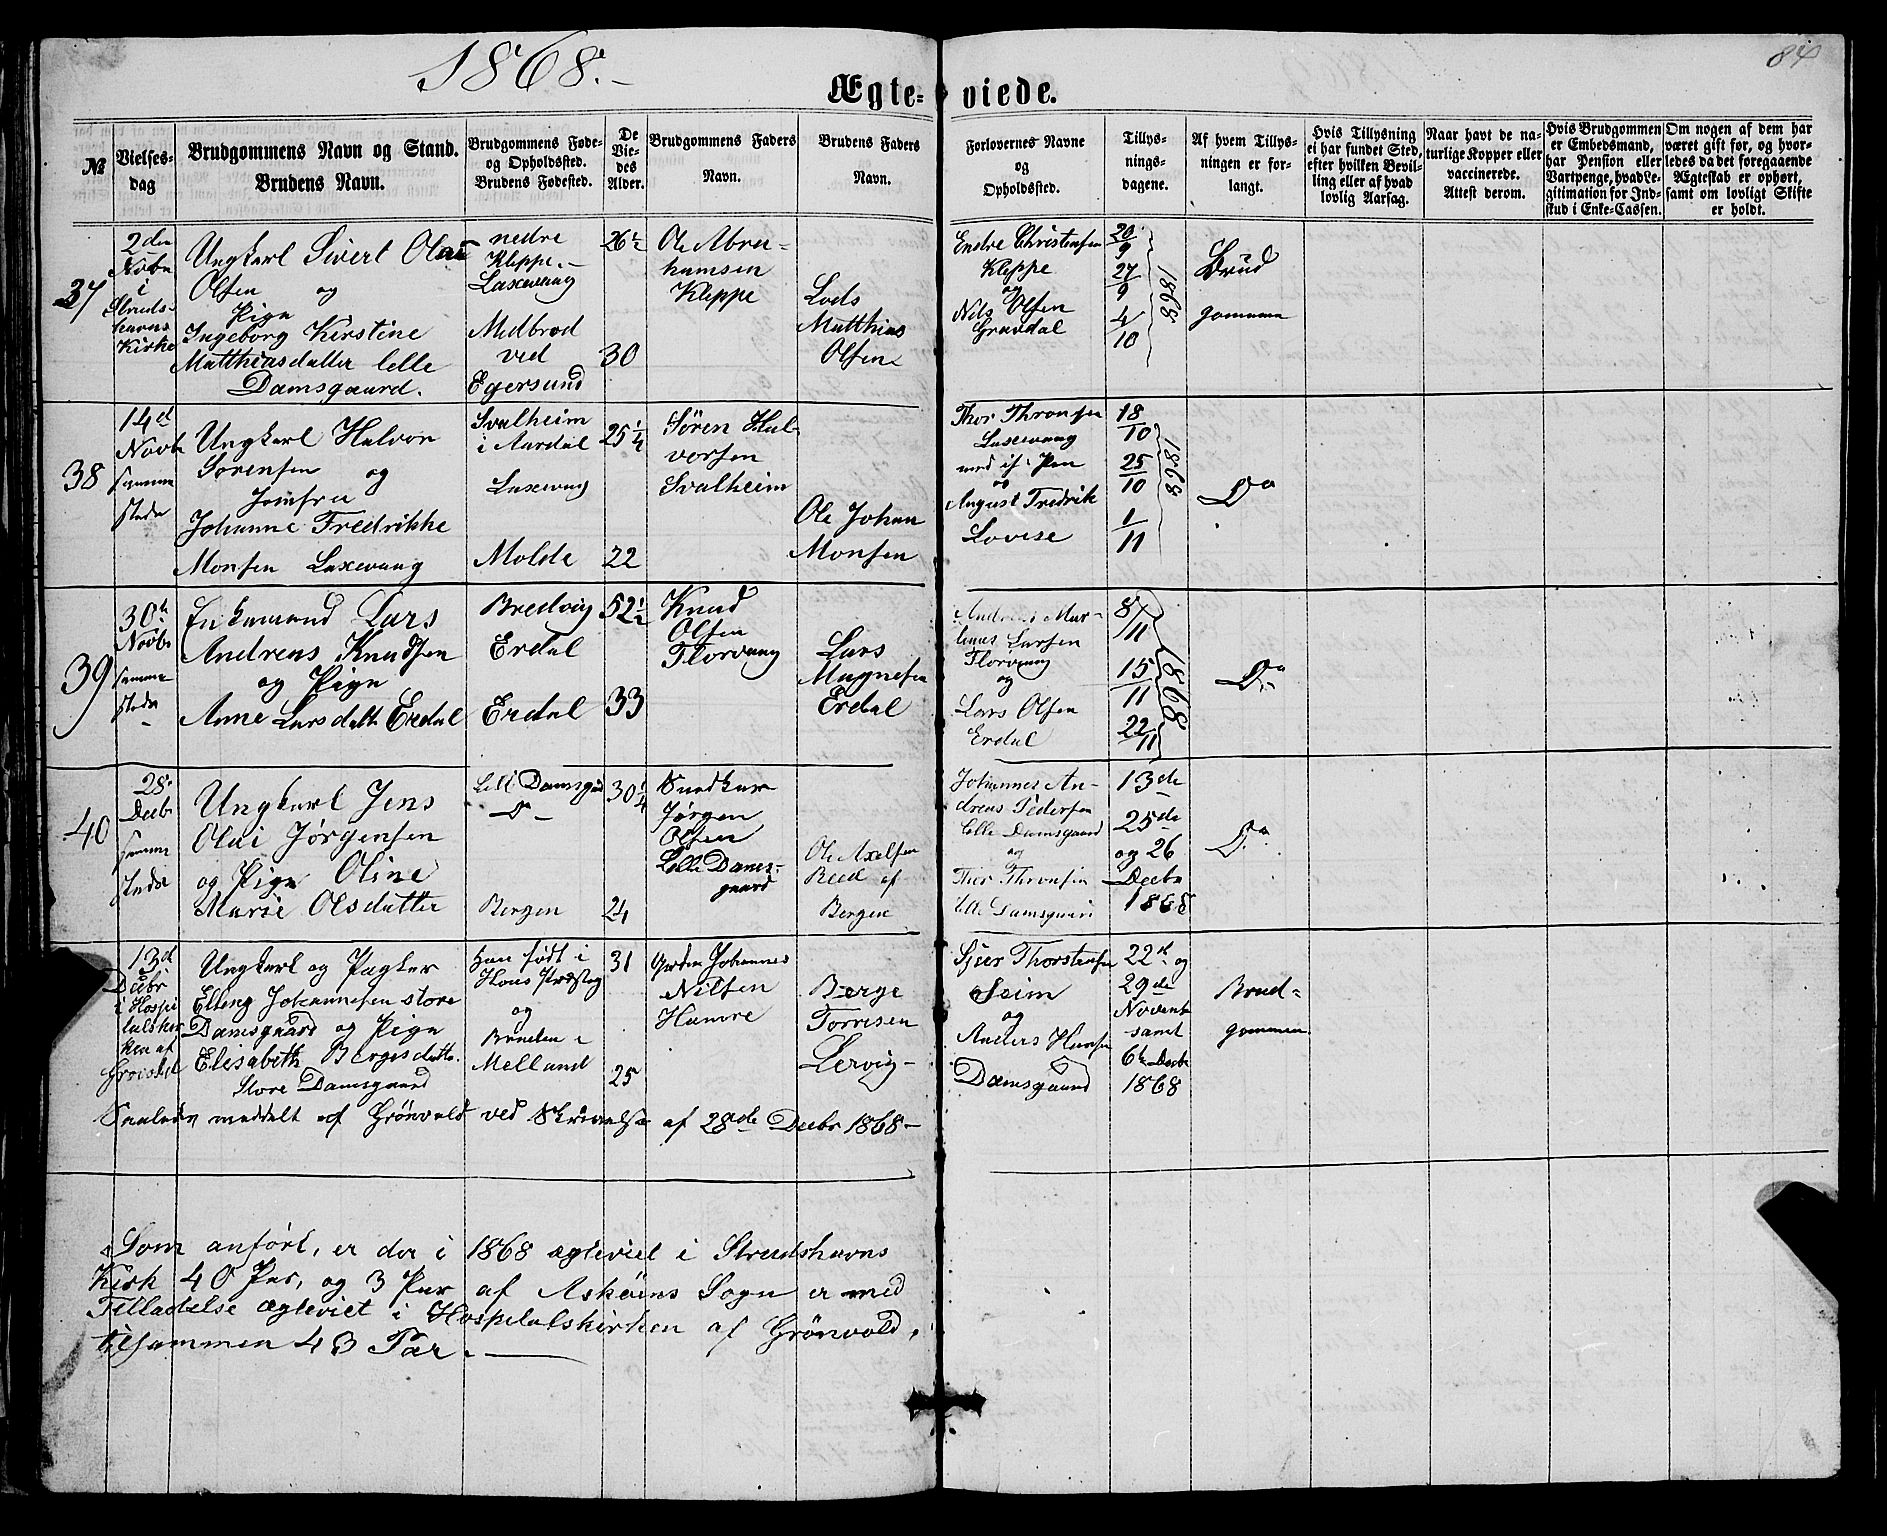 1868.-
84
Ægte= viede.
№
Vielses-
dag
Brudgommens Navn og Stand.
Brudens Navn.
Brudgommens Føde-
og Opholdssted.
Brudens Fødested.
De
Vie-
des
Alder.
Brudgommens Faders
Navn.
Brudens Faders
Navn.
Forlovernes Navne
og
Opholdssted.
Tillys-
nings-
dagene.
Af hvem Tillys-
ningen er for-
langt.
Hvis Tillysning
ei har fundet Sted,
efter hvilken Bevil-
ling eller af hvad
lovlig Aarsag.
Naar havt de na-
turlige Kopper eller
vaccinerede.
Attest derom.
Hvis Brudgommen
er Embedsmand,
har Pension eller
Vartpenge, hvad Le-
gitimation for Ind-
skud i Enke-Cassen.
Om nogen af dem har
været gift før, og hvor-
ledes da det foregaaende
Ægteskab er ophørt,
samt om lovligt Skifte
er holdt.
37
2den
Novbr
i
Struds-
havns
Kirke
Ungkarl Sivert Olai
Olsen og
Pige
Ingeborg Kirstine
Matthiasdatter lelle
Damsgaard.
nedre
Kleppe.-
Laxevaag
Midbrod
ved
Egersund
26½
30
Ole Abra-
hamsen
Kleppe
Lods
Matthias
Olsen
Endre Christensen
Kleppe
og
Nils Olsen
Gravdal
20/9
27/9
4/10
1868
Brud
gommen
38
14d
Novb
samme
steder
Ungkarl Halvor
Sørensen og
Jomfru
Johanne Fredrikke
Monsen Laxevaag
Svalheim
i Aardal
Laxevaag
Molde
25¼
22
Søren Hal-
vorsen
Svalheim
Ole Johan
Monsen
Thor Thronsen
Laxevaag
med if. Pen
og
August Fredrik
Lovise
18/10
25/10
1/11
1868
Do
39
30te
Novbr
samme
steder
Enkemand Lars
Andreas Knudsen
og Pige
Anne Larsdatter Erdal
Bredvig
Erdal
Erdal
52½
33
Knud
Olsen
Florvaag
Lars
Magnesen
Erdal
Andreas Mar-
Larsen
Florvaag
og
Lars Olsen
Erdal
8/11
15/11
22/11
1868
Do
40
28de
Decbr
samme
steder
Ungkarl Jens
Olai Jørgensen
og Pige Oline
Marie Olsdatter
Lille Damsgrd
Do
Bergen
30¼
24
Snedker
Jørgen
Olsen
Lille Dams-
gaard
Ole Axelsen
af
Bergen
Johannes An-
dreas Pedersen
Lille Damsgaard
og
Thor Thronsen
Lille Damsgaard
13de
25de
og 26
Decbr
1868
Do
13d
Decbr
i Hospi
talskir
ken af
Grønvold
Ungkarl og Pagker
Elling Johannesen store
Damsgaard og Pige
Elisabeth Bergesdatter
Store Damsgaard
Han født i
Hous Præsteg
og
Bruden i
Melland
31
25
Gerden Johannes
Nilsen
Hamre
Berge
Torrisen
Lervig-
Sjur Thorstensen
Seim
og
Anders Hansen
Damsgaard
22d og
29de
Novembr
samt
6te Decbr
1868
Brud=
gommen
Saaledes meddelt af Grønvold ved Skrivelse af 28de Decbr 1868-
Som anført, er der i 1868 ægteviet i Strudshavns
Kirk 40 Par, og 3 Par af Askøens Sogn er med
Tilladelse ægteviet i Hospitalskirken af Grönvold,
tilsammen 43 Par.